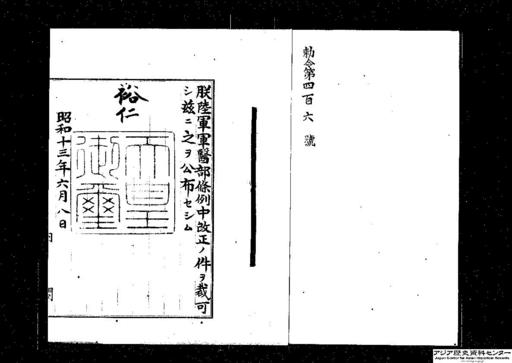 勅令第四百六號
朕陸軍軍醫部條例中改正ノ件ヲ裁可
シ茲ニ之ヲ公布セシム
裕仁
天皇御璽
昭和十三年六月八日
内閣
アジア歴史資料センター
Japan Center for Asian Historical Records